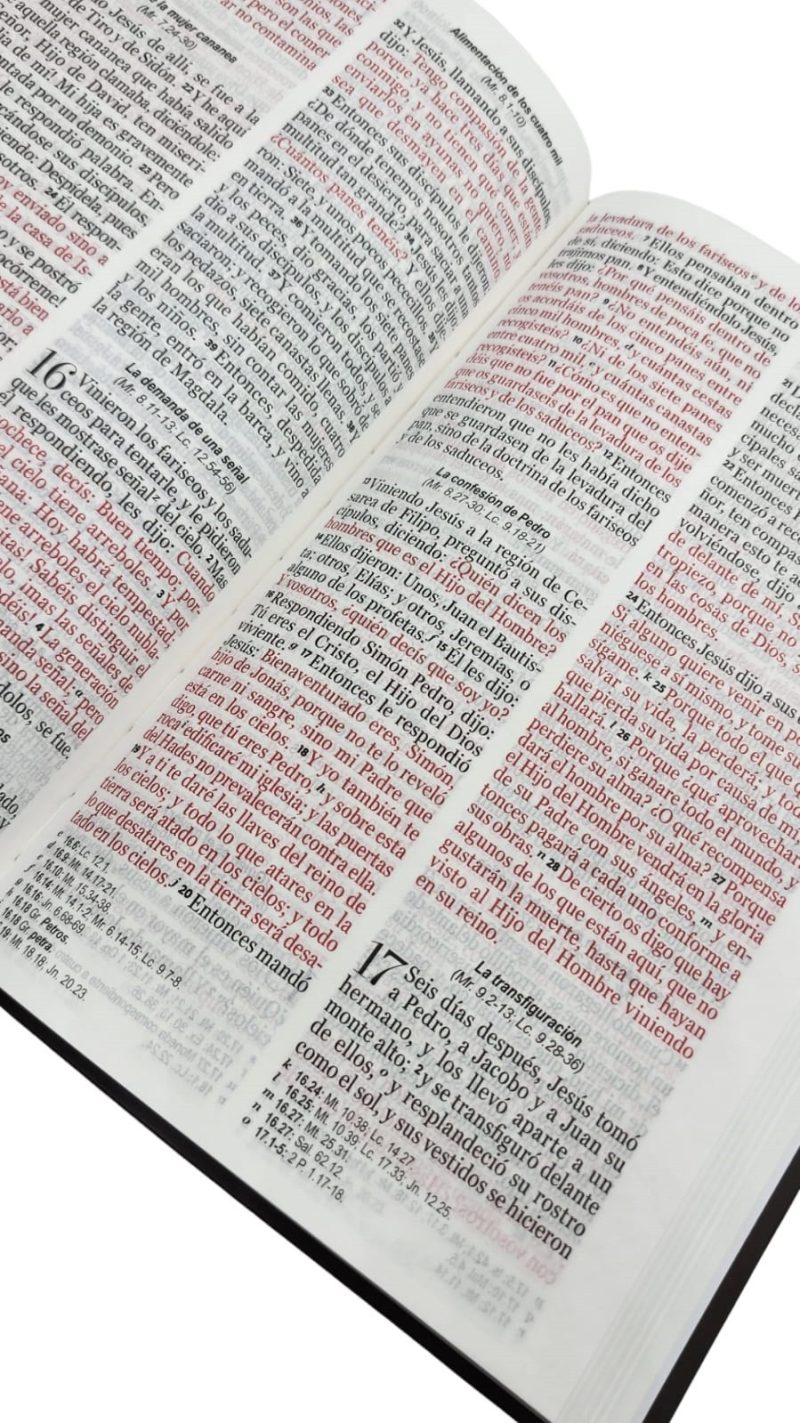 de la mujer cananea
(Mr. 7.24-30)
Jesús de allí, se fue a la
de Tiro y de Sidón. 22 Y he aquí
mujer cananea que había salido
aquella región clamaba, diciéndole:
Señor, Hijo de David, ten miseri-
de mí! Mi hija es gravemente
atormentada por un demonio. 23 Pero
le respondió palabra.
sus discípulos
Despídela, pues
nosotros. 24 Él respon-
enviado sino a
de la casa de Is-
y se postró
¡Señor, socórreme!
está bien
Alimentación de los cuatro mil
(Mr. 8.1-10)
32 Y Jesús, llamando a sus discípulos,
dijo: Tengo compasión de la gente,
porque ya hace tres días que están
conmigo, y no tienen qué comer; y
enviarlos en ayunas no quiero, no
sea que desmayen en el camino.
33 Entonces sus discípulos le dijeron:
¿De dónde tenemos nosotros tantos
panes en el desierto, para saciar a una
multitud tan grande? 34 Jesús les dijo:
¿Cuántos panes tenéis? Y ellos dije-
ron: Siete, y unos pocos pececillos. 35 Y
mandó a la multitud que se recostase
en tierra. 36 Y tomando los siete panes
y los peces, dio gracias, los partió y
dio a sus discípulos, y los discípulos a
la multitud. 37 Y comieron todos, y se
saciaron; y recogieron lo que sobró de
los pedazos, siete canastas llenas. 38 Y
eran los que habían comido, cuatro
mil hombres, sin contar las mujeres
y los niños. 39 Entonces, despedida
la gente, entró en la barca, y vino a
la región de Magdala.
La demanda de una señal
(Mr. 8.11-13; Lc. 12.54-56)
16 Vinieron los fariseos y los sadu-
ceos para tentarle, y le pidieron
que les mostrase señal del cielo. 2 Mas
él respondiendo, les dijo: Cuando
anochece, decís: Buen tiempo; por-
que el cielo tiene arreboles. 3 Y por
la mañana: Hoy habrá tempestad;
porque tiene arreboles el cielo nubla-
do. ¡Hipócritas! Sabéis distinguir el
aspecto del cielo, ¡mas las señales de
los tiempos no podéis! 4 La generación
demanda señal; pero
sino la señal de
dejándolos, se fue.
la levadura de los fariseos y de los
saduceos. 7 Ellos pensaban dentro
de sí, diciendo: Esto dice porque no
trajimos pan. 8 Y entendiéndolo Jesús,
les dijo: ¿Por qué pensáis dentro de
vosotros, hombres de poca fe, que no
tenéis pan? 9 ¿No entendéis aún, ni
os acordáis de los cinco panes entre
cinco mil hombres, d y cuántas cestas
recogisteis? 10 ¿Ni de los siete panes
entre cuatro mil, e y cuántas canastas
recogisteis? 11 ¿Cómo es que no enten-
déis que no fue por el pan que os dije
que os guardaseis de la levadura de los
fariseos y de los saduceos? 12 Entonces
entendieron que no les había dicho
que se guardasen de la levadura del
pan, sino de la doctrina de los fariseos
y de los saduceos.
La confesión de Pedro
(Mr. 8.27-30; Lc. 9.18-21)
13 Viniendo Jesús a la región de Ce-
sarea de Filipo, preguntó a sus dis-
cípulos, diciendo: ¿Quién dicen los
hombres que es el Hijo del Hombre?
14 Ellos dijeron: Unos, Juan el Bautis-
ta; otros, Elías; y otros, Jeremías, o
alguno de los profetas. f 15 Él les dijo:
Y vosotros, ¿quién decís que soy yo?
16 Respondiendo Simón Pedro, dijo:
Tú eres el Cristo, el Hijo del Dios
viviente. g 17 Entonces le respondió
Jesús: Bienaventurado eres, Simón,
hijo de Jonás, porque no te lo reveló
carne ni sangre, sino mi Padre que
está en los cielos. 18 Y yo también te
digo, que tú eres Pedro, h y sobre esta
roca i edificaré mi iglesia; y las puertas
del Hades no prevalecerán contra ella.
19 Y a ti te daré las llaves del reino de
los cielos; y todo lo que atares en la
tierra será atado en los cielos; y todo
lo que desatares en la tierra será desa-
tado en los cielos. j 20 Entonces mandó
c 16.6: Lc. 12.1.
d 16.9: Mt. 14.17-21.
16.10: Mt. 15.34-38.
f 16.14: Mt. 14.1-2; Mr. 6.14-15; Lc. 9.7-8.
16.16: Jn. 6.68-69.
16.18 Gr. Petros.
16.18 Gr. petra.
19: Mt. 18.18; Jn. 20.23.
23 Entonces
comenzó a
Señor, ten compas
manera esto te a
volviéndose, dijo
de delante de mí, S
tropiezo, porque no
en las cosas de Dios, s
los hombres.
24 Entonces Jesús dijo a sus
Si alguno quiere venir en po
niéguese a sí mismo, y tome su
sígame. k 25 Porque todo el que
salvar su vida, la perderá; y tod
que pierda su vida por causa de m
hallará. l 26 Porque ¿qué aprovechar
al hombre, si ganare todo el mundo, y
perdiere su alma? ¿O qué recompensa
dará el hombre por su alma? 27 Porque
el Hijo del Hombre vendrá en la gloria
de su Padre con sus ángeles, m y en-
tonces pagará a cada uno conforme a
sus obras. n 28 De cierto os digo que hay
algunos de los que están aquí, que no
gustarán la muerte, hasta que hayan
visto al Hijo del Hombre viniendo
en su reino.
La transfiguración
(Mr. 9.2-13; Lc. 9.28-36)
17 Seis días después, Jesús tomó
a Pedro, a Jacobo y a Juan su
hermano, y los llevó aparte a un
monte alto; 2 y se transfiguró delante
de ellos, o y resplandeció su rostro
como el sol, y sus vestidos se hicieron
k 16.24: Mt. 10.38; Lc. 14.27.
l 16.25: Mt. 10.39; Lc. 17.33; Jn. 12.25.
m 16.27: Mt. 25.31.
n 16.27: Sal. 62.12.
o 17.1-5: 2 P. 1.17-18.